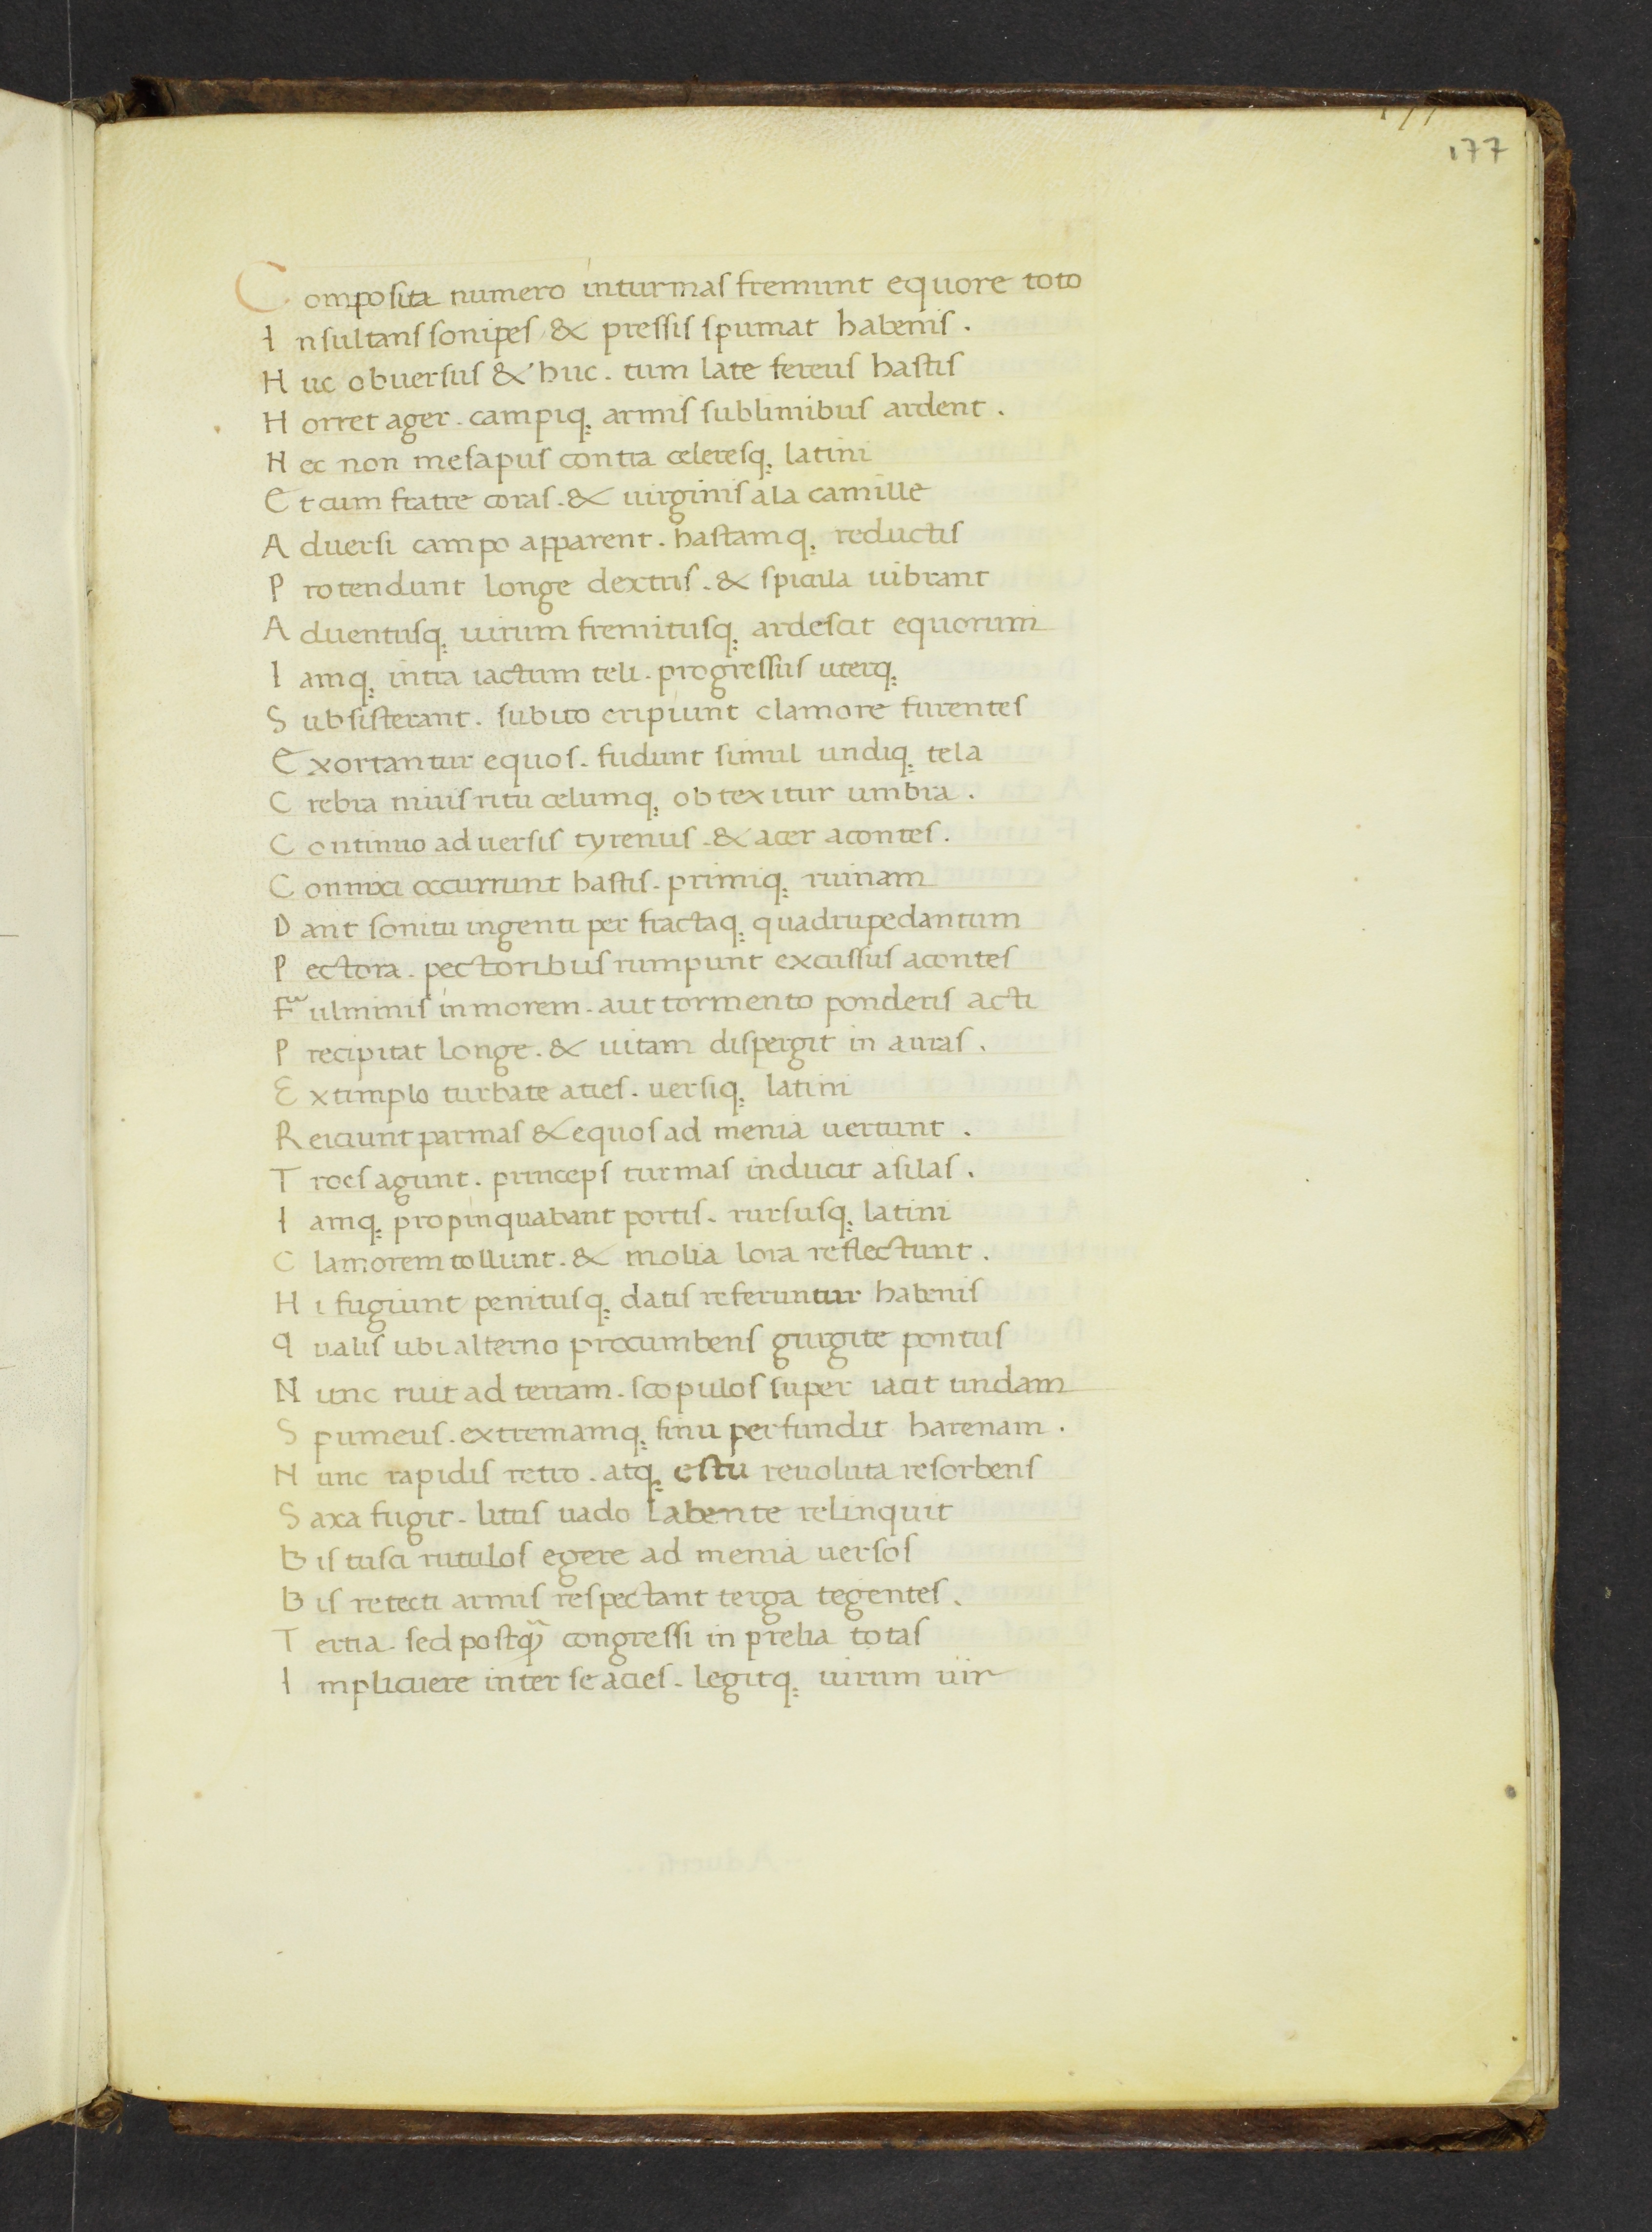 177
Composita numero in turmas fremunt equore toto
Insultans sonipes & pressis spumat habenis.
Huc obuersus & huc. tum late fereus hastis
Horret ager. campiq; armis sublimibus ardent.
Nec non mesapus contra celeresq; latini
Et cum fratre coras. & uirginis ala camille
Aduersi campo apparent. hastamq; reductis
Protendunt longe dextris. & spicula uibrant
Aduentusq; uirum fremitusq; ardescit equorum
Iamq; intra iactum teli. progressus uterq;
Subsisterant. subito eripiunt clamore furentes
Exortantur equos. fudunt simul undiq; tela
Crebra niuis ritu celumq; obtexitur umbra.
Continuo aduersis tyrenus. & acer acontes.
Connixi occurrunt hastis. primiq; ruinam
Dant sonitu ingenti perfractaq; quadrupedantum
Pectora. pectoribus rumpunt excussus acontes
Fulminis in morem. aut tormento ponderis acti
Precipitat longe. & uitam dispergit in auras.
Extimplo turbate acies. uersiq; latini
Reiciunt parmas & equos ad menia uertunt.
Troes agunt. princeps turmas inducit asilas.
Iamq; propinquabant portis. rursusq; latini
Clamorem tollunt. & molia lora reflectunt.
Hi fugiunt penitusq; datis referuntur habenis
Qualis ubi alterno procumbens gurgite pontus
Nunc ruit ad terram. scopulos super iacit undam
Spumeus. extremamq; sinu perfundit harenam.
Nunc rapidis retro. atq; estu reuoluta resorbens
Saxa fugit. litus uado labente relinquit
Bis tusci rutulos egere ad menia uersos
Bis retecti armis respectant terga tegentes.
Tertia. sed postqȝ̃ congressi in prelia totas
Implicuere inter se acies. legitq; uirum uir